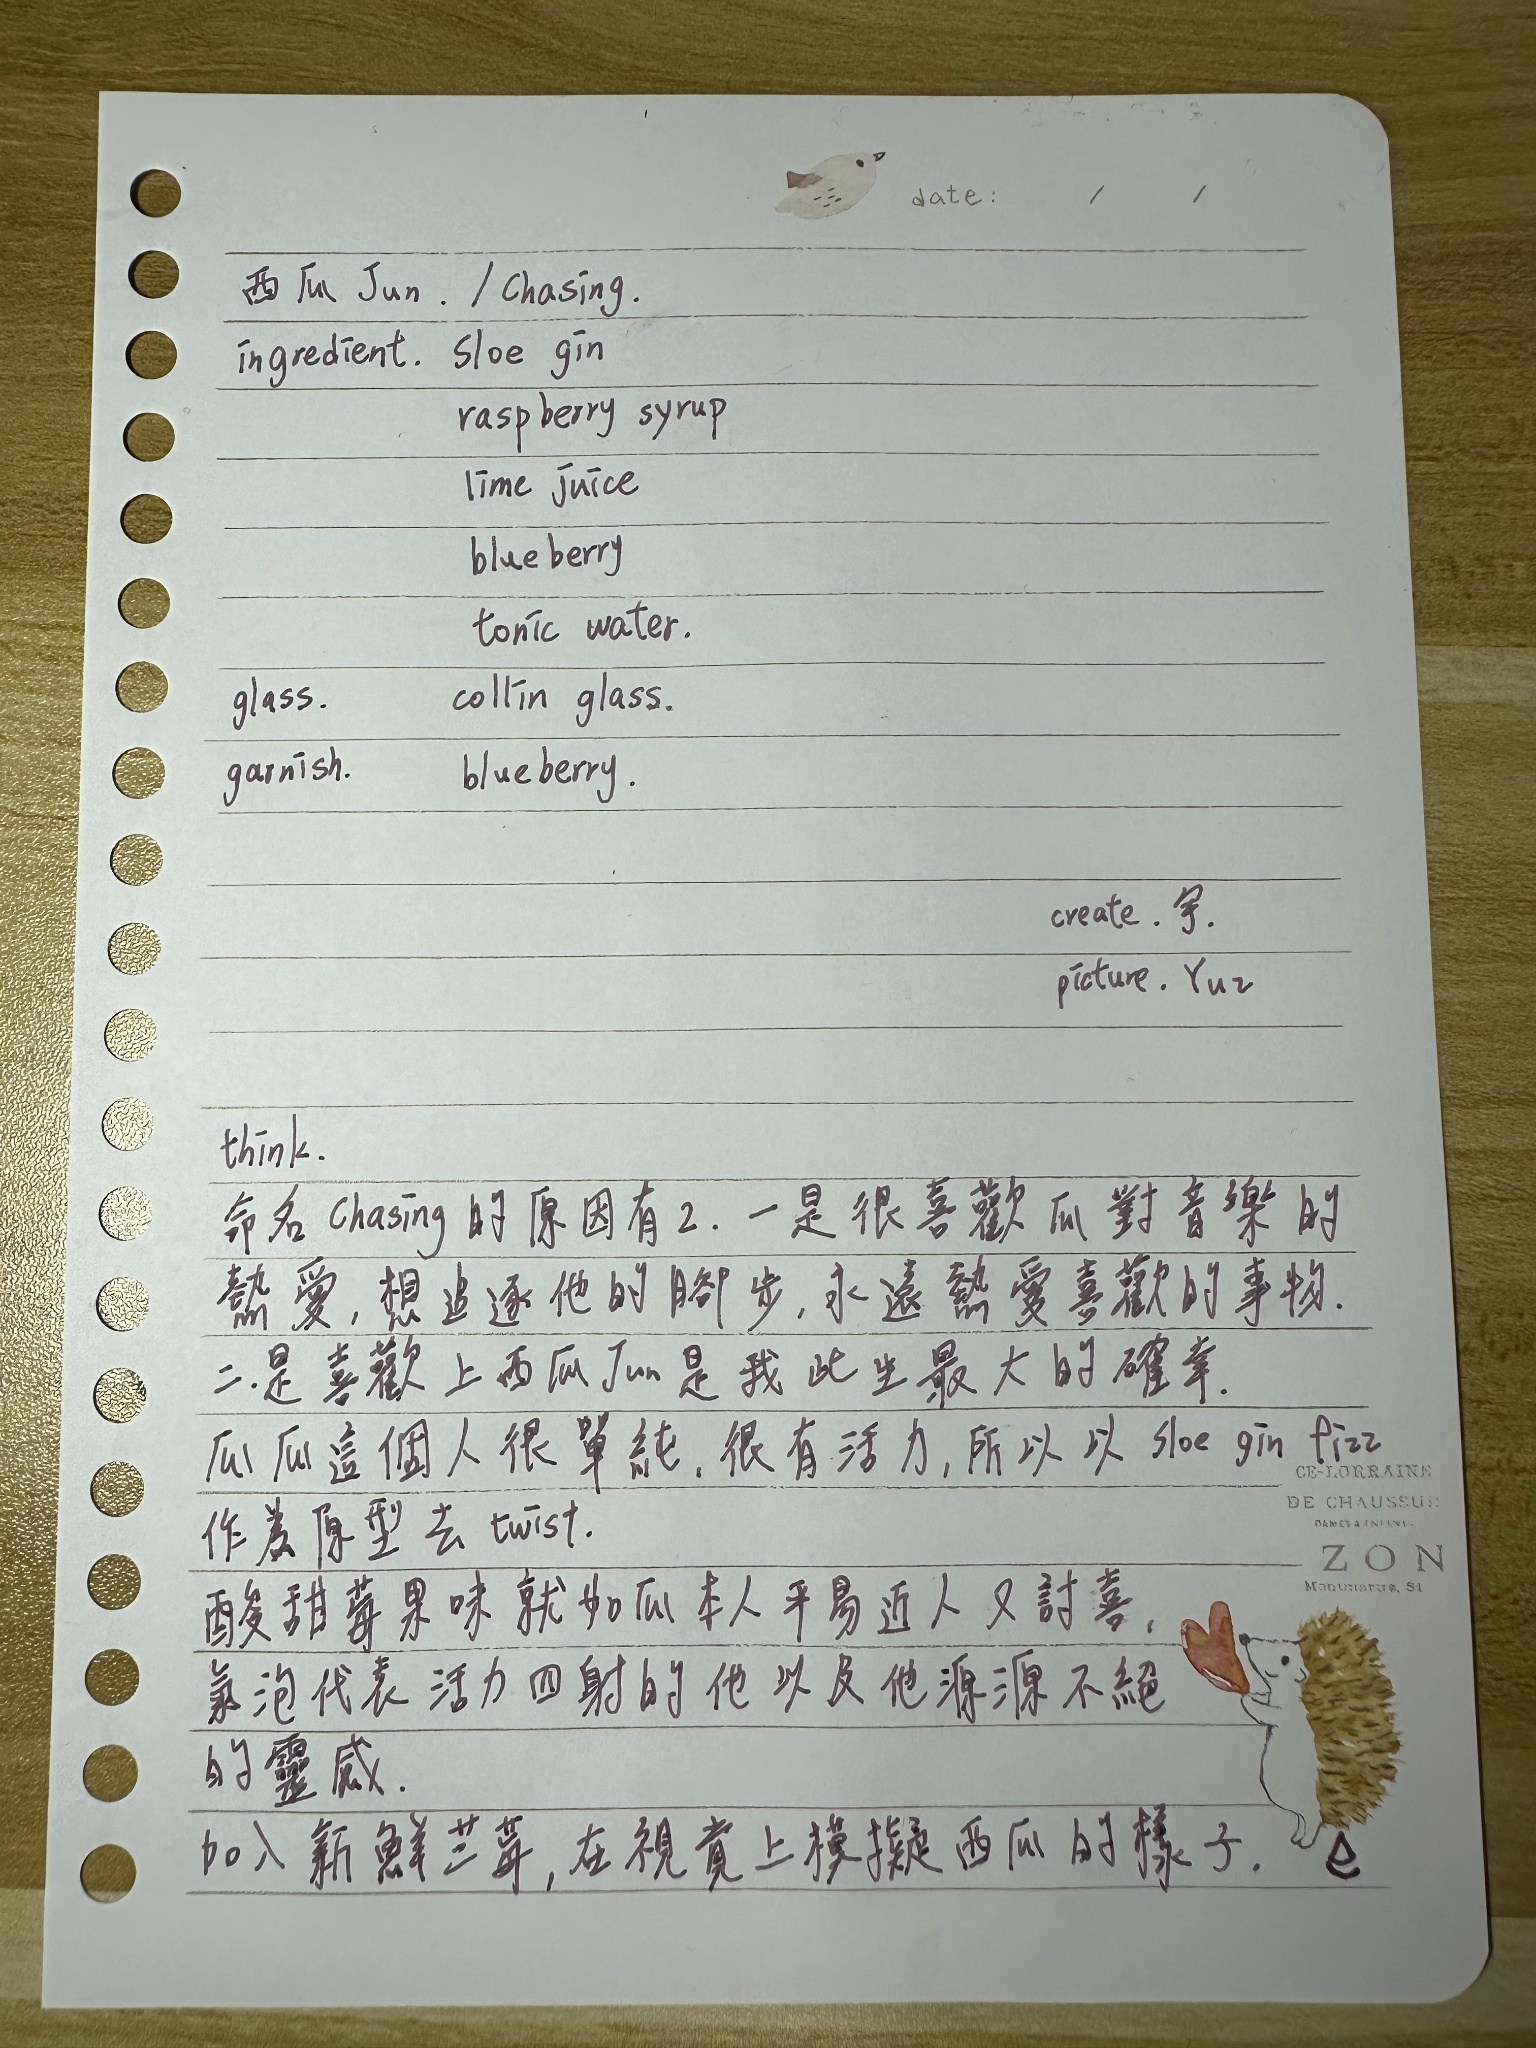 date: / /
西瓜 Jun. / Chasing.
ingredient. sloe gin
raspberry syrup
lime juice
blueberry
tonic water.
glass. collin glass.
garnish. blueberry.
create. 宇.
picture. Yuz
think.
命名 Chasing 的原因有2. 一是很喜歡瓜對音樂的
熱愛, 想追逐他的腳步, 永遠熱愛喜歡的事物.
二.是喜歡上西瓜Jun是我此生最大的確幸.
瓜瓜這個人很單純, 很有活力, 所以以 sloe gin fizz
作為原型去 twist.
酸甜莓果味就如瓜本人平易近人又討喜,
氣泡代表活力四射的他以及他源源不絕
的靈感.
加入新鮮芒莓, 在視覺上模擬西瓜的樣子.
CE-LORRAINE
DE CHAUSSUR
ZON